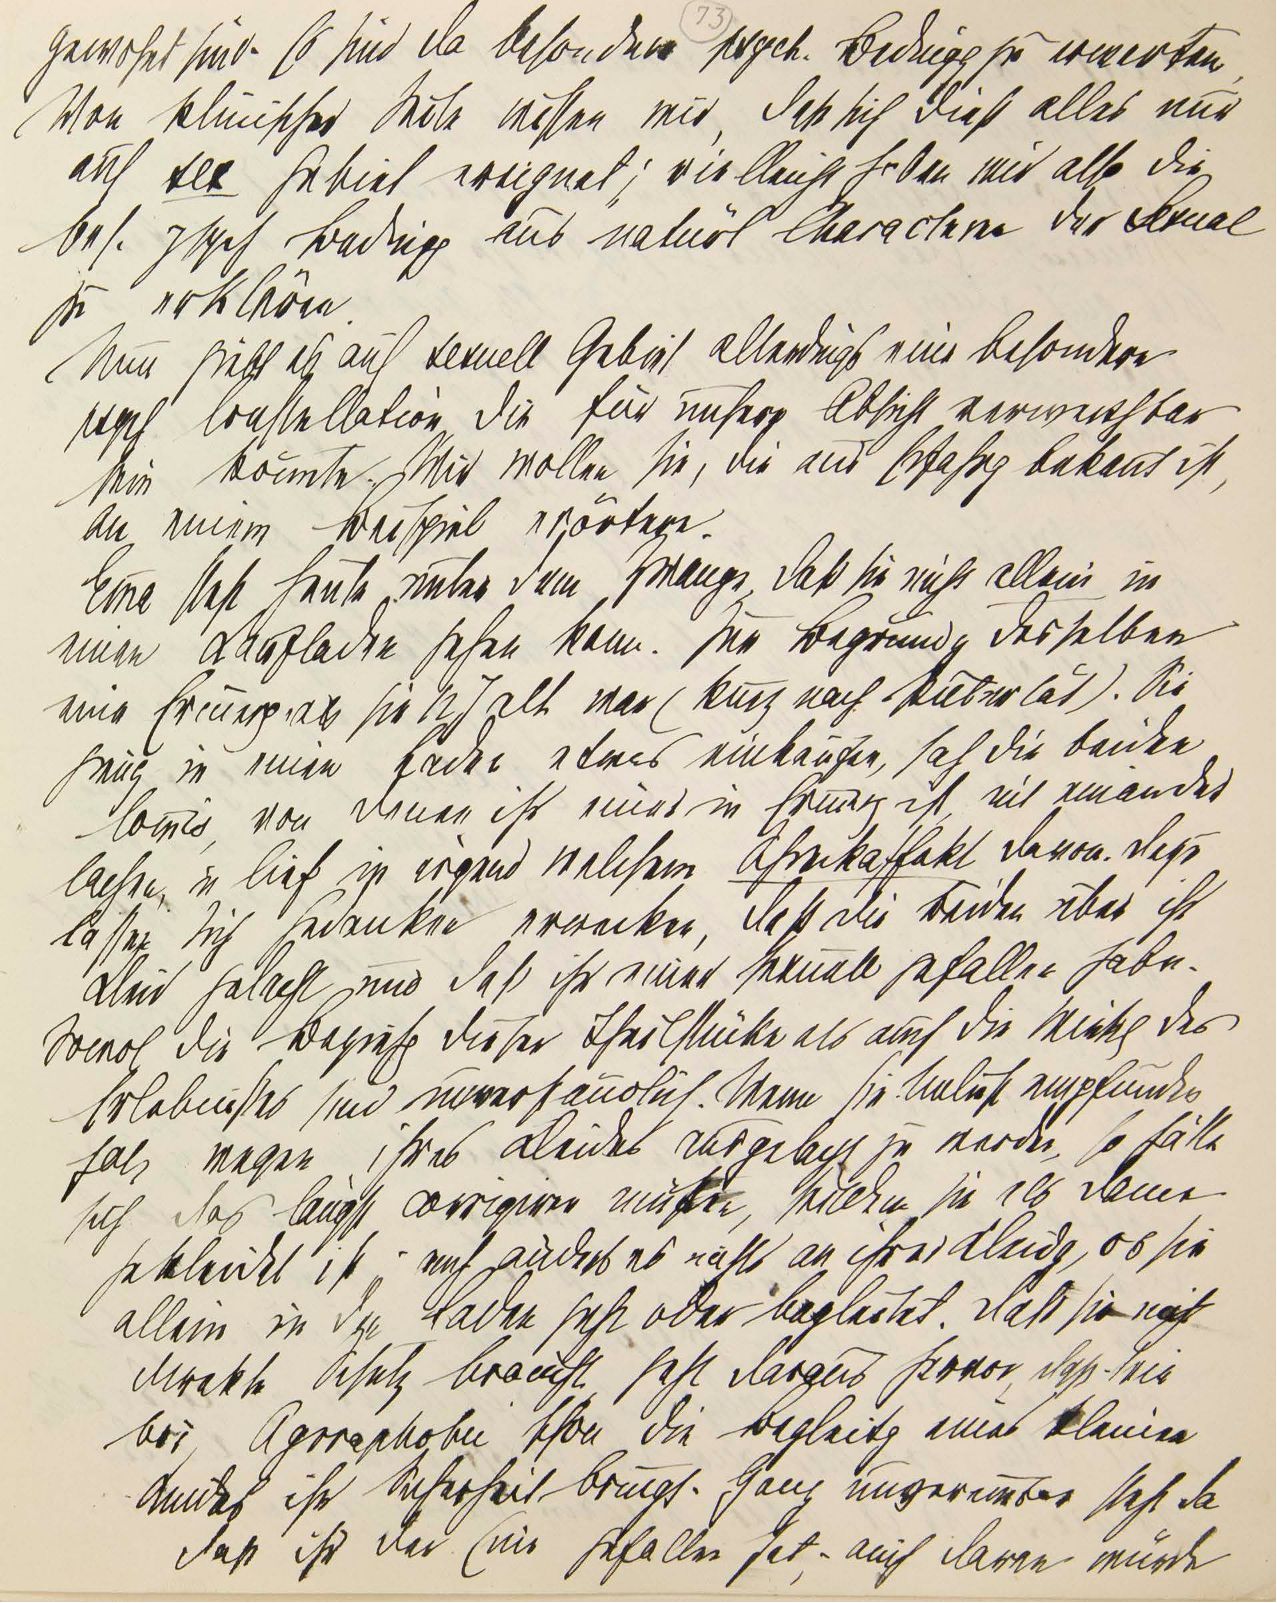 73
gewohnt sind. Es sind da besondere psych. Bedingg zu erwarten.
Von klinischer Seite wissen wir, daß sich dieß alles nur
auf sex Gebiet ereignet; vielleicht haben wir also die
bes. psych Bedingg aus natürl Charactere der Sexual
zu erklären.
Nun gibt es auf sexuell Gebiet allerdings eine besondere
psych Constellation die für unsere Absicht verwerthbar
sein könnte. Wir wollen sie, die aus Erfahrg bekannt ist,
an einem Beispiel erörtern.
Emma steht heute unter dem Zwange, daß sie nicht allein in
einen Kaufladen gehen kann. Zur Begründg desselben
eine Erinnerg, als sie 12 J alt war (kurz nach Pubertät). Sie
ging in einen Laden etwas einkaufen, sah die beiden
Comis, von denen ihr einer in Erinnerg ist, mit einander
lachen, u lief in irgend welchem Schreckaffekt davon. Dazu
lassen sich Gedanken erwecken, daß die beiden über ihr
Kleid gelacht und daß ihr einer sexuell gefallen habe.
Sowol die Beziehg dieser Theilstücke als auch die Wirkg des
Erlebnisses sind unverständlich. Wenn sie Unlust empfunden
hat, wegen ihres Kleides ausgelacht zu werden, so hätte
sich das längst corrigiren müßen, seitdem sie als Dame
gekleidet ist; auch ändert es nichts an ihrer Kleidg, ob sie
allein in den Laden geht oder begleitet. Daß sie nicht
direkte Schutz braucht, geht daraus hervor, daß wie
bei Agoraphobie schon die Begleitg eines kleinen
Kindes ihr Sicherheit bringt. Ganz unvereinbar steht da
daß ihr der eine gefallen hat; auch daran würde